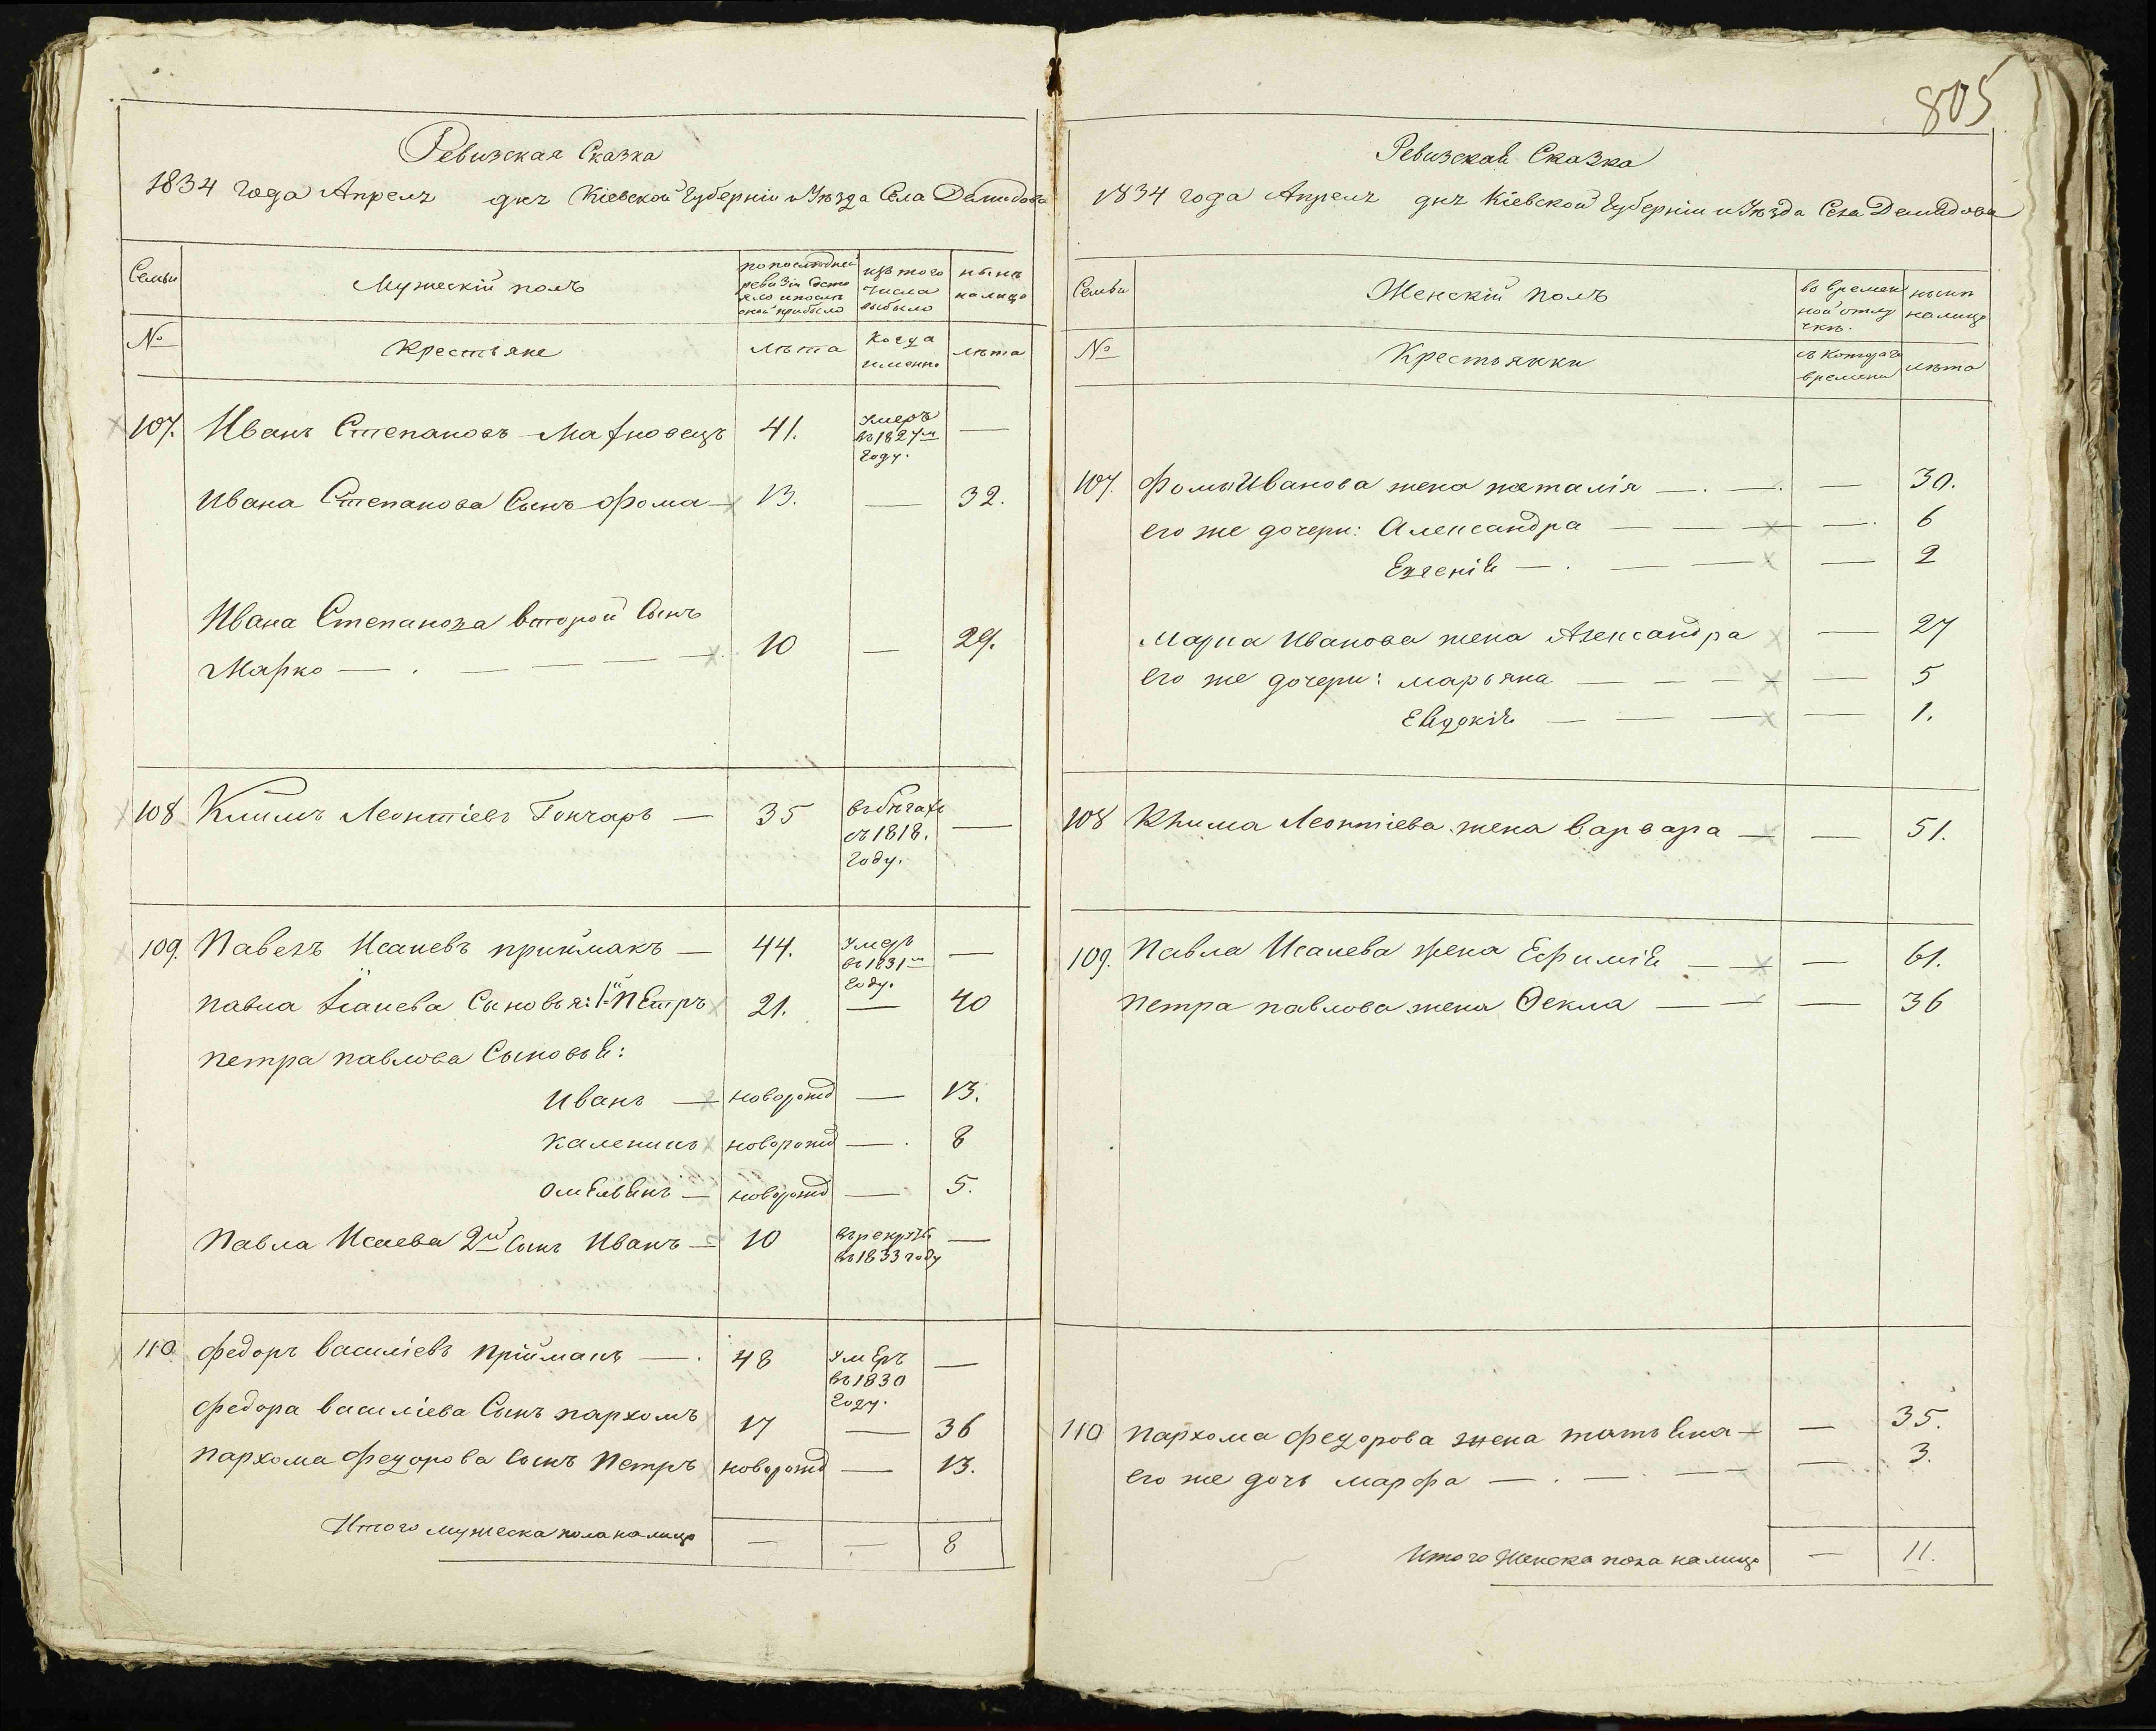 805
Ревизская Сказка
1834 года Апреля дня Кіевской Губерніи и Уезда Села Демидова
Семьи
Мужескій полъ
по последней ревизіи состояло и после оной прибыло
изъ того числа выбыло
ныне налицо
№
Крестьяне
лета
Когда именно
лета
107. Иванъ Степановъ Махновецъ 41. Умеръ въ 1827м году. —
Ивана Степанова Сынъ Фома — 13. — 32.
Ивана Степанова второй Сынъ
Марко — . — — — — 10 — 29.
108 Климъ Леонтіевъ Гончаръ — 35 въ бегахъ съ 1818. году. —
109. Павелъ Исаиевъ приймакъ — 44. Умеръ въ 1831м году. —
павла Исаиева Сыновья: 1й ПЕтръ 21. — 40
петра павлова Сыновья:
Иванъ — новорожд — 13.
Каленикъ новорожд — . 8
ОмЕльянъ — новорожд — 5.
Павла Исаева 2й Сынъ Иванъ — 10 въ рекруты въ 1833 году —
110 Федоръ Василіевъ Пріймакъ — . 48 УмЕръ въ 1830 году. —
Федора Василіева Сынъ пархомъ 17 — 36
пархома Федорова Сынъ Петръ новорожд — 13.
Итого мужеска пола налицо — — 8
Ревизская Сказка
1834 года Апреля дня Кіевской Губерніи и Уезда Села Демидова
Семьи
Женскій полъ
во временной отлучке.
ныне налицо
№
Крестьянки
съ котораго времени
лета
107. Фомы Иванова жена наталія — . — . — 30.
его же дочери: Александра — — — — . 6
Евгенія — . — — — 2
Марка Иванова жена Александра — 27
его же дочери: марьяна — — — — — 5
Евдокія — — — — 1.
108 Клима Леонтіева жена варвара — — 51.
109. Павла Исаиева жена Ефимія — — — 61.
петра павлова жена Фекла — — — 36
110 пархома Федорова жена татьяна — — 35.
его же дочь марфа — . — . — — — 3.
Итого Женска пола налицо — 11.